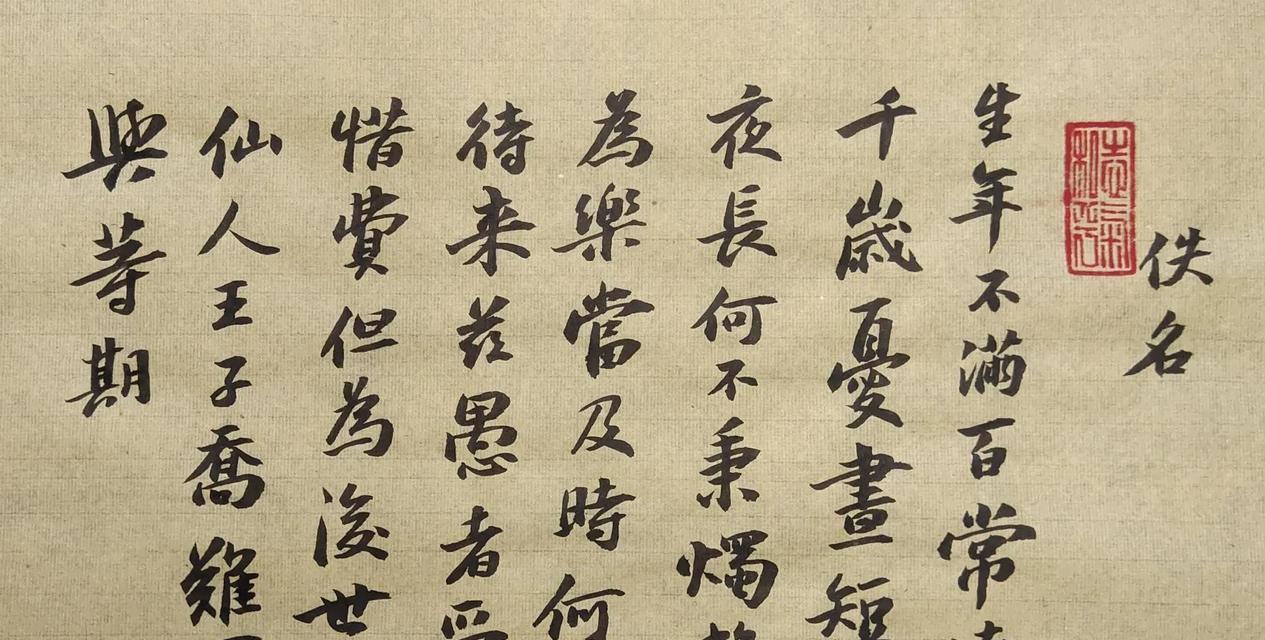 佚名
生年不滿百常
千歲憂晝短
夜長何不秉燭
為樂當及時何
待来茲愚者
惜費但為後世
仙人王子喬難
與等期